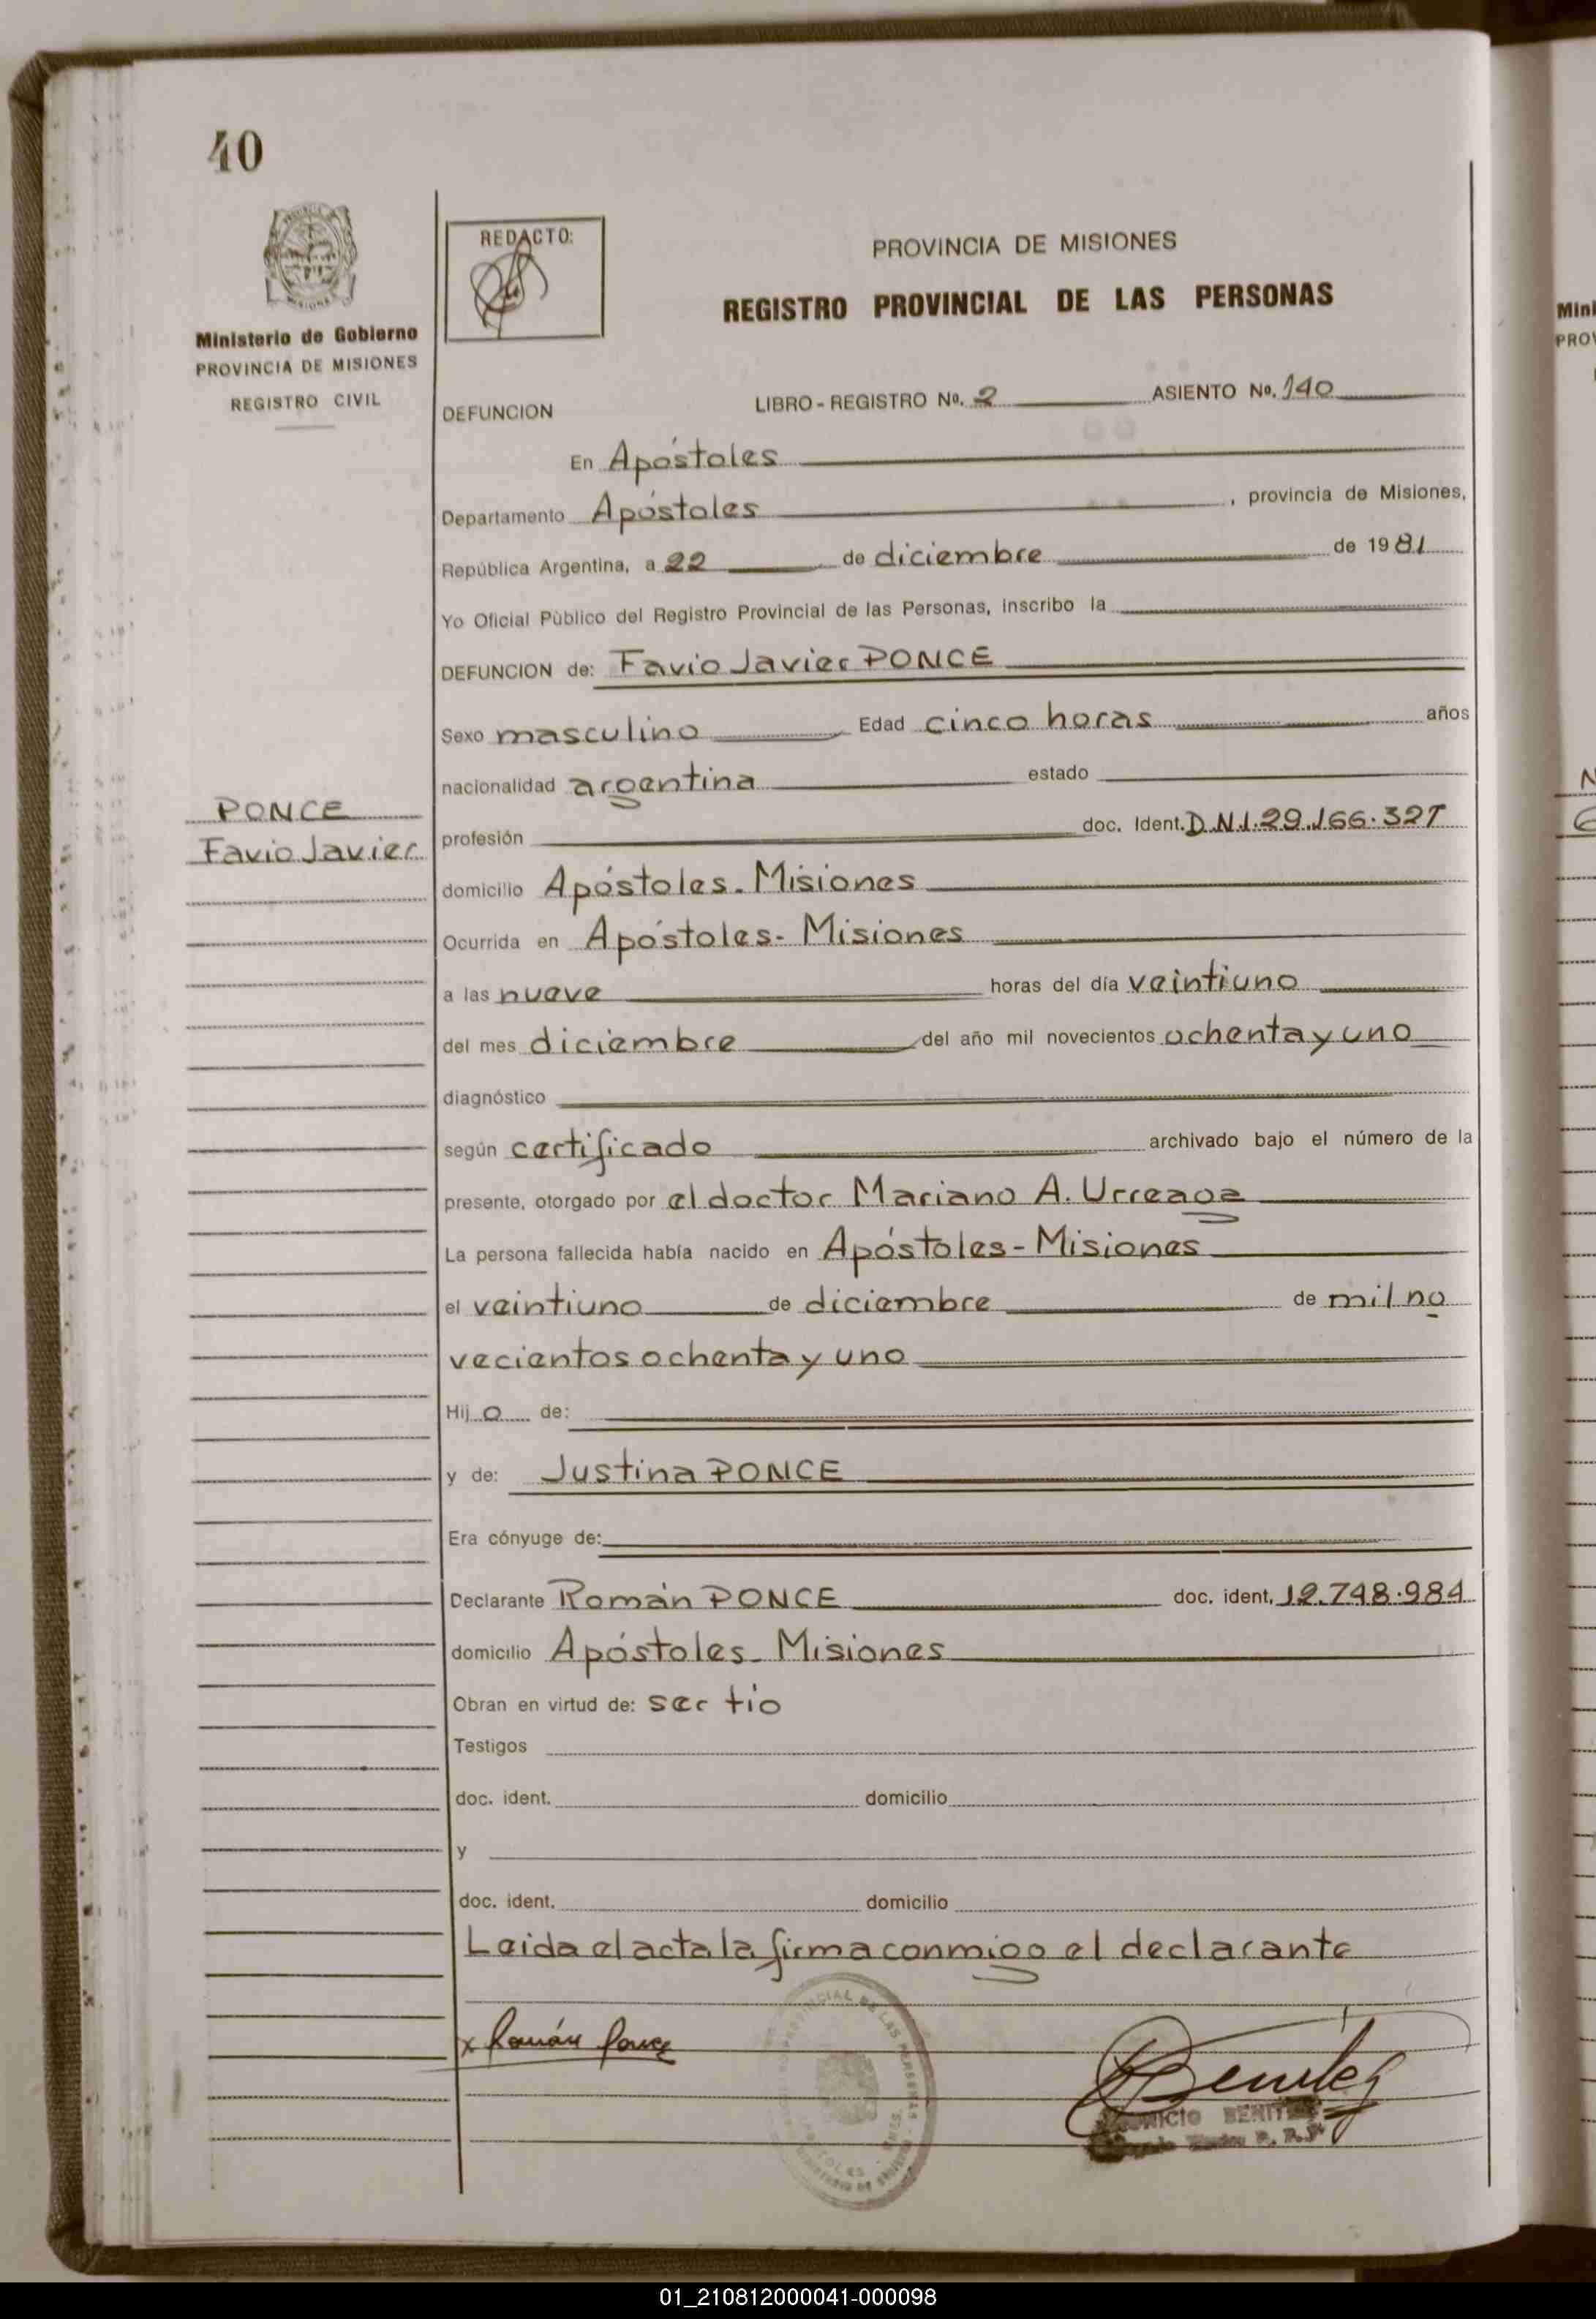 40
Ministerio de Gobierno
PROVINCIA DE MISIONES
REGISTRO CIVIL
PONCE
Favio Javier
REDACTO:
PROVINCIA DE MISIONES
REGISTRO PROVINCIAL DE LAS PERSONAS
DEFUNCION LIBRO - REGISTRO Nº. 2 ASIENTO Nº. 140
En Apóstoles
Departamento Apóstoles , provincia de Misiones,
República Argentina, a 22 de diciembre de 1981
Yo Oficial Público del Registro Provincial de las Personas, inscribo la
DEFUNCION de: Favio Javier PONCE
Sexo masculino Edad cinco horas años
nacionalidad argentina estado
profesión doc. Ident. D.N.I. 29.166.327
domicilio Apóstoles. Misiones
Ocurrida en Apóstoles - Misiones
a las nueve horas del día veintiuno
del mes diciembre del año mil novecientos ochenta y uno
diagnóstico
según certificado archivado bajo el número de la
presente, otorgado por el doctor Mariano A. Urreaga
La persona fallecida había nacido en Apóstoles - Misiones
el veintiuno de diciembre de mil no
vecientos ochenta y uno
Hij o de:
y de: Justina PONCE
Era cónyuge de:
Declarante Román PONCE doc. ident. 12.748.984
domicilio Apóstoles - Misiones
Obran en virtud de: ser tío
Testigos
doc. ident. domicilio
y
doc. ident. domicilio
Leida el acta la firma conmigo el declarante
x Román Ponce
Benitez
BENITEZ
01_210812000041-000098